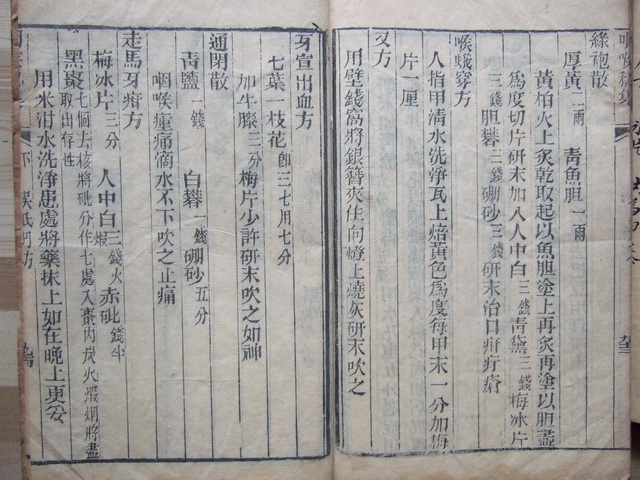 綠袍散
厚黃二兩　青魚胆一兩
黃柏火上炙乾取起以魚胆塗上再炙再塗以胆盡
爲度切片研末加入人中白三錢青黛三錢梅冰片
三錢胆礬三錢硼砂三錢研末治口疳疔瘡
喉蛾穿方
人指甲清水洗淨瓦上焙黃色爲度每甲末一分加梅
片一厘
又方
用壁錢窩將銀簪夾住向燈上燒灰研末吹之
牙宣出血方
七葉一枝花卽三七用七分
加牛膝三分梅片少許研末吹之如神
通閉散
青鹽一錢　白礬一錢硼砂五分
咽喉瘂痛滴水不下吹之止痛
走馬牙疳方
梅冰片三分　人中白三錢火煅赤砒錢半
黑棗七個去核將砒分作七處入棗肉炭火煅烟將盡
取出存性
用米泔水洗淨患處將藥抹上如在晚上更妥